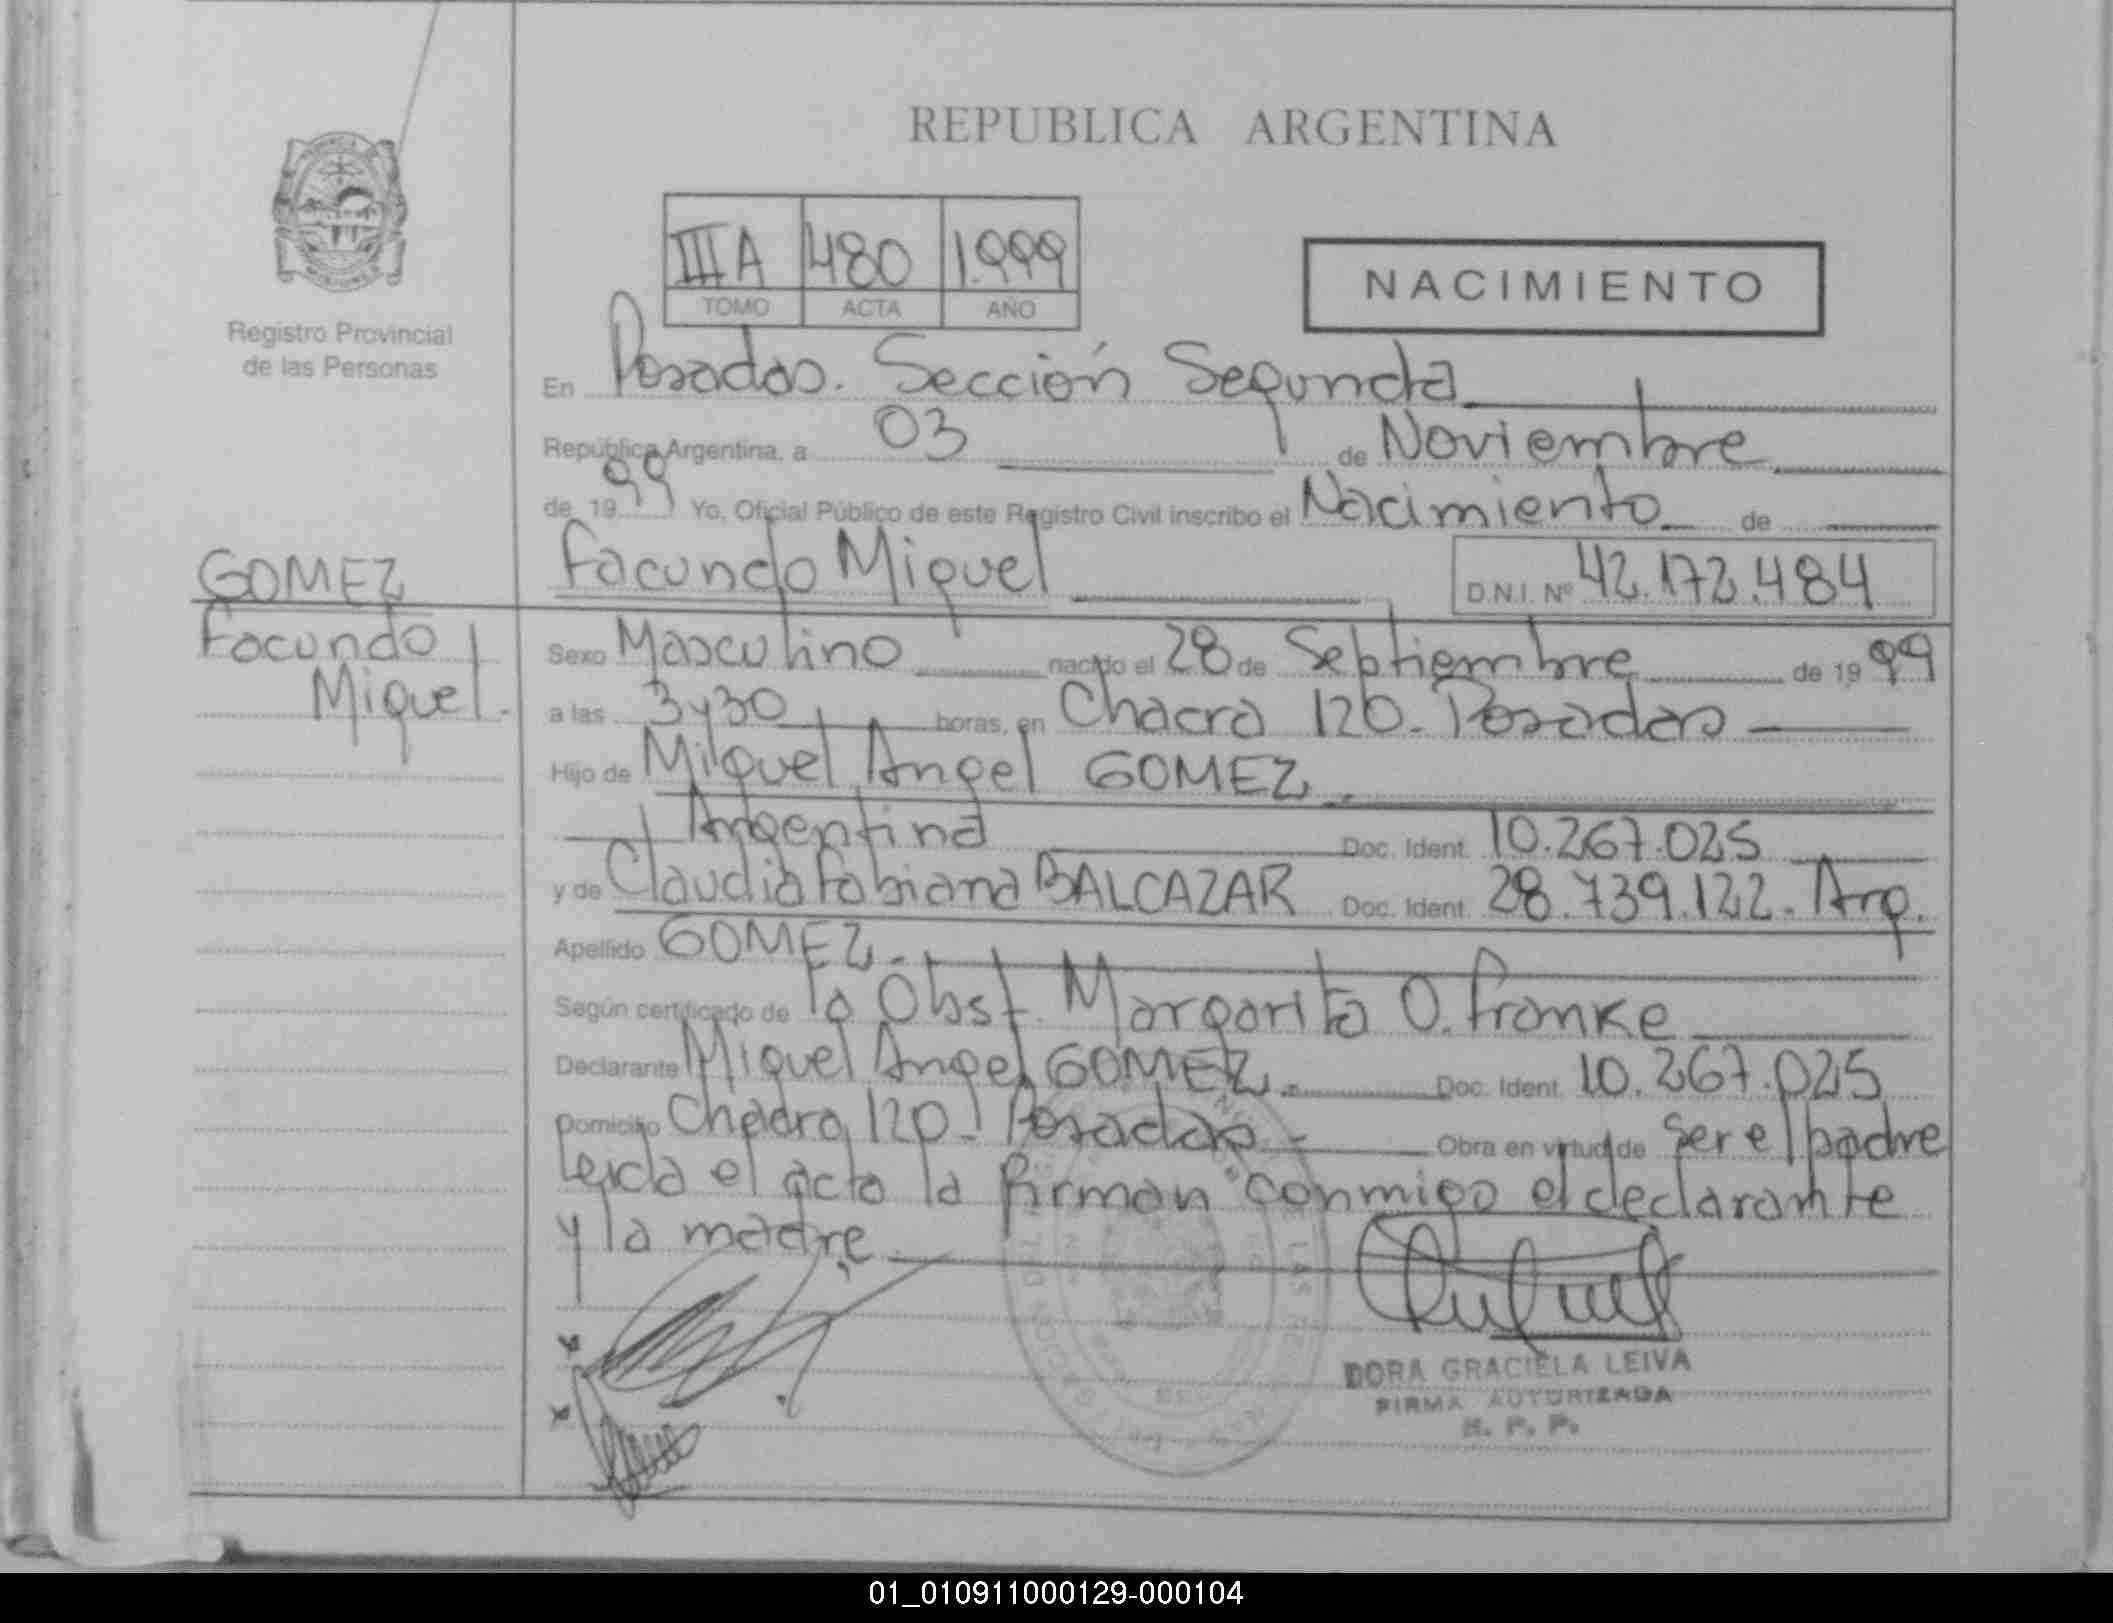 REPUBLICA ARGENTINA
IIIA 480 1.999
TOMO ACTA AÑO
NACIMIENTO
Registro Provincial
de las Personas
En Posadas. Sección Segunda
República Argentina, a 03 de Noviembre
de 1999 Yo, Oficial Público de este Registro Civil inscribo el Nacimiento de
Facundo Miguel D.N.I. Nº 42.172.484
GOMEZ
Facundo
Miguel.
Sexo Masculino nacido el 28 de Septiembre de 1999
a las 3y30 horas, en Chacra 120. Posadas
Hijo de Miguel Angel GOMEZ.
Argentina Doc. Ident. 10.267.025
y de Claudia Fabiana BALCAZAR Doc. Ident. 28.739.122. Arg.
Apellido GOMEZ.
Según certificado de la Obst. Margarita O. Franke
Declarante Miguel Angel GOMEZ. Doc. Ident. 10.267.025
Domicilio Chacra 120. Posadas Obra en virtud de ser el padre
Leida el acta la firman conmigo el declarante
y la madre
DORA GRACIELA LEIVA
FIRMA AUTORIZADA
R. P. P.
01_010911000129-000104